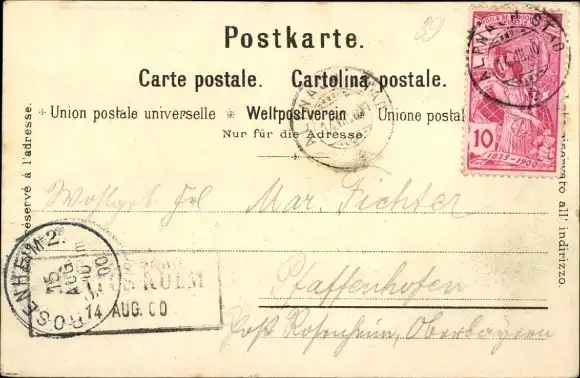 39
Postkarte.
Carte postale. Cartolina postale.
Union postale universelle * Weltpostverein * Unione postal
Nur für die Adresse.
10
1875-1900
réservé à l'adresse.
all' indirizzo.
Wohlgeb Frl Mar. Fichter
Pfaffenhofen
Post Rosenheim, Oberbayern
ROSENHEIM 2.
15
AUG.
00
KULM
14 AUG. 00